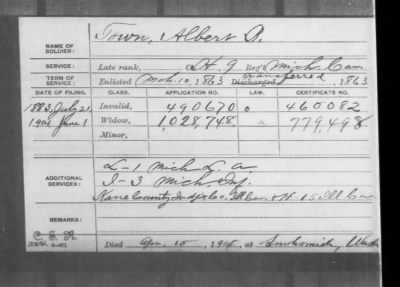 Town, Albert D.
NAME OF SOLDIER:
SERVICE: Late rank, Co H. 9 Reg't Mich. Cav
TERM OF SERVICE: Enlisted Mch. 10, 1863 Discharged transferred, 1863
DATE OF FILING. CLASS. APPLICATION NO. LAW. CERTIFICATE NO.
1883, July 21, Invalid, 490670 460082
1914 June 1 Widow, 1,028,748 a 779,498
Minor,
ADDITIONAL SERVICES:
L-1 Mich L. A.
I-3 Mich Inf.
Kane County Indp Co. Ill Cav. & H-15 Ill Cav
REMARKS:
Died Apr. 15, 1914, at Snohomish, Wash